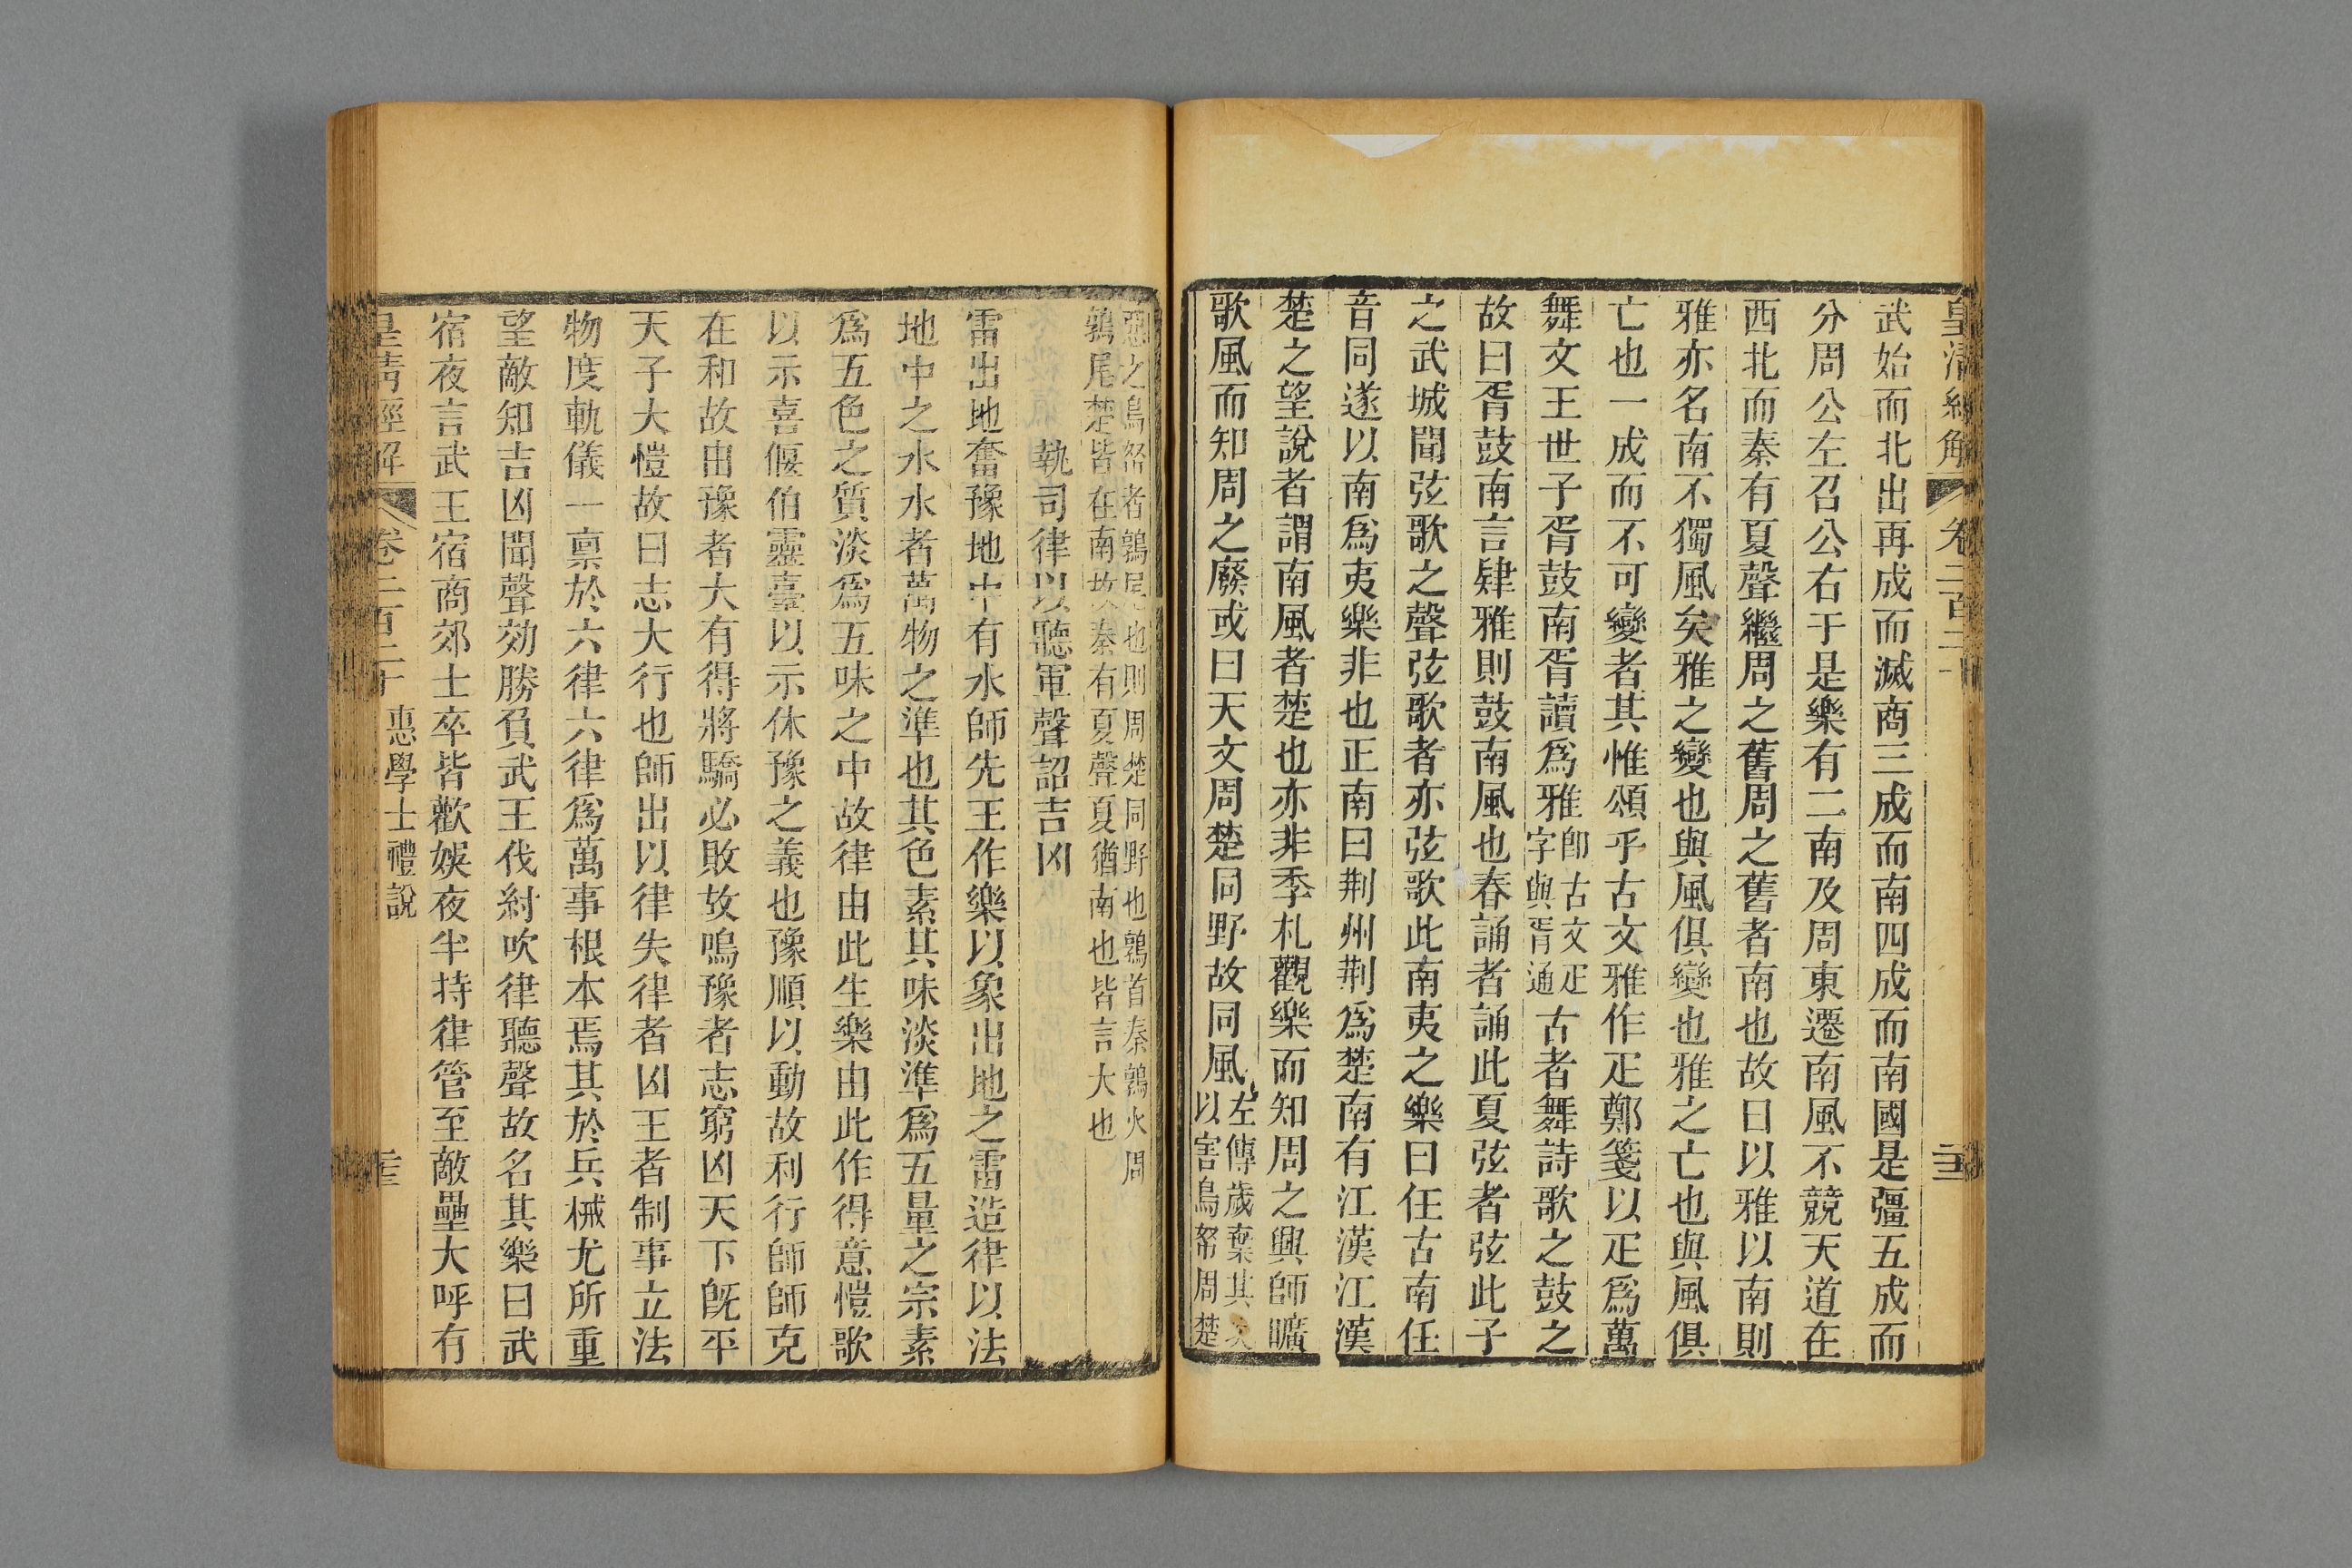 皇清經解 卷二百二十 三
武始而北出再成而滅商三成而南四成而南國是疆五成而
分周公左召公右于是樂有二南及周東遷南風不競天道在
西北而秦有夏聲繼周之舊周之舊者南也故曰以雅以南則
雅亦名南不獨風矣雅之變也與風俱變也雅之亡也與風俱
亡也一成而不可變者其惟頌乎古文雅作疋鄭箋以疋爲萬
舞文王世子胥鼓南胥讀爲雅卽古文疋字與胥通古者舞詩歌之鼓之
故曰胥鼓南言肄雅則鼓南風也春誦者誦此夏弦者弦此子
之武城聞弦歌之聲弦歌者亦弦歌此南夷之樂曰任古南任
音同遂以南爲夷樂非也正南曰荆州荆爲楚南有江漢江漢
楚之望說者謂南風者楚也亦非季札觀樂而知周之興師曠
歌風而知周之廢或曰天文周楚同野故同風左傳歲棄其次以害鳥帑周楚
惡之鳥帑者鶉尾也則周楚同野也鶉首秦鶉火周
鶉尾楚皆在南故秦有夏聲夏猶南也皆言大也
執司律以聽軍聲詔吉凶
雷出地奮豫地中有水師先王作樂以象出地之雷造律以法
地中之水水者萬物之準也其色素其味淡準爲五量之宗素
爲五色之質淡爲五味之中故律由此生樂由此作得意愷歌
以示喜偃伯靈臺以示休豫之義也豫順以動故利行師師克
在和故由豫者大有得將驕必敗故鳴豫者志窮凶天下旣平
天子大愷故曰志大行也師出以律失律者凶王者制事立法
物度軌儀一稟於六律六律爲萬事根本焉其於兵械尤所重
望敵知吉凶聞聲効勝負武王伐紂吹律聽聲故名其樂曰武
宿夜言武王宿商郊士卒皆歡娛夜半持律管至敵壘大呼有
皇清經解 卷二百二十 惠學士禮說